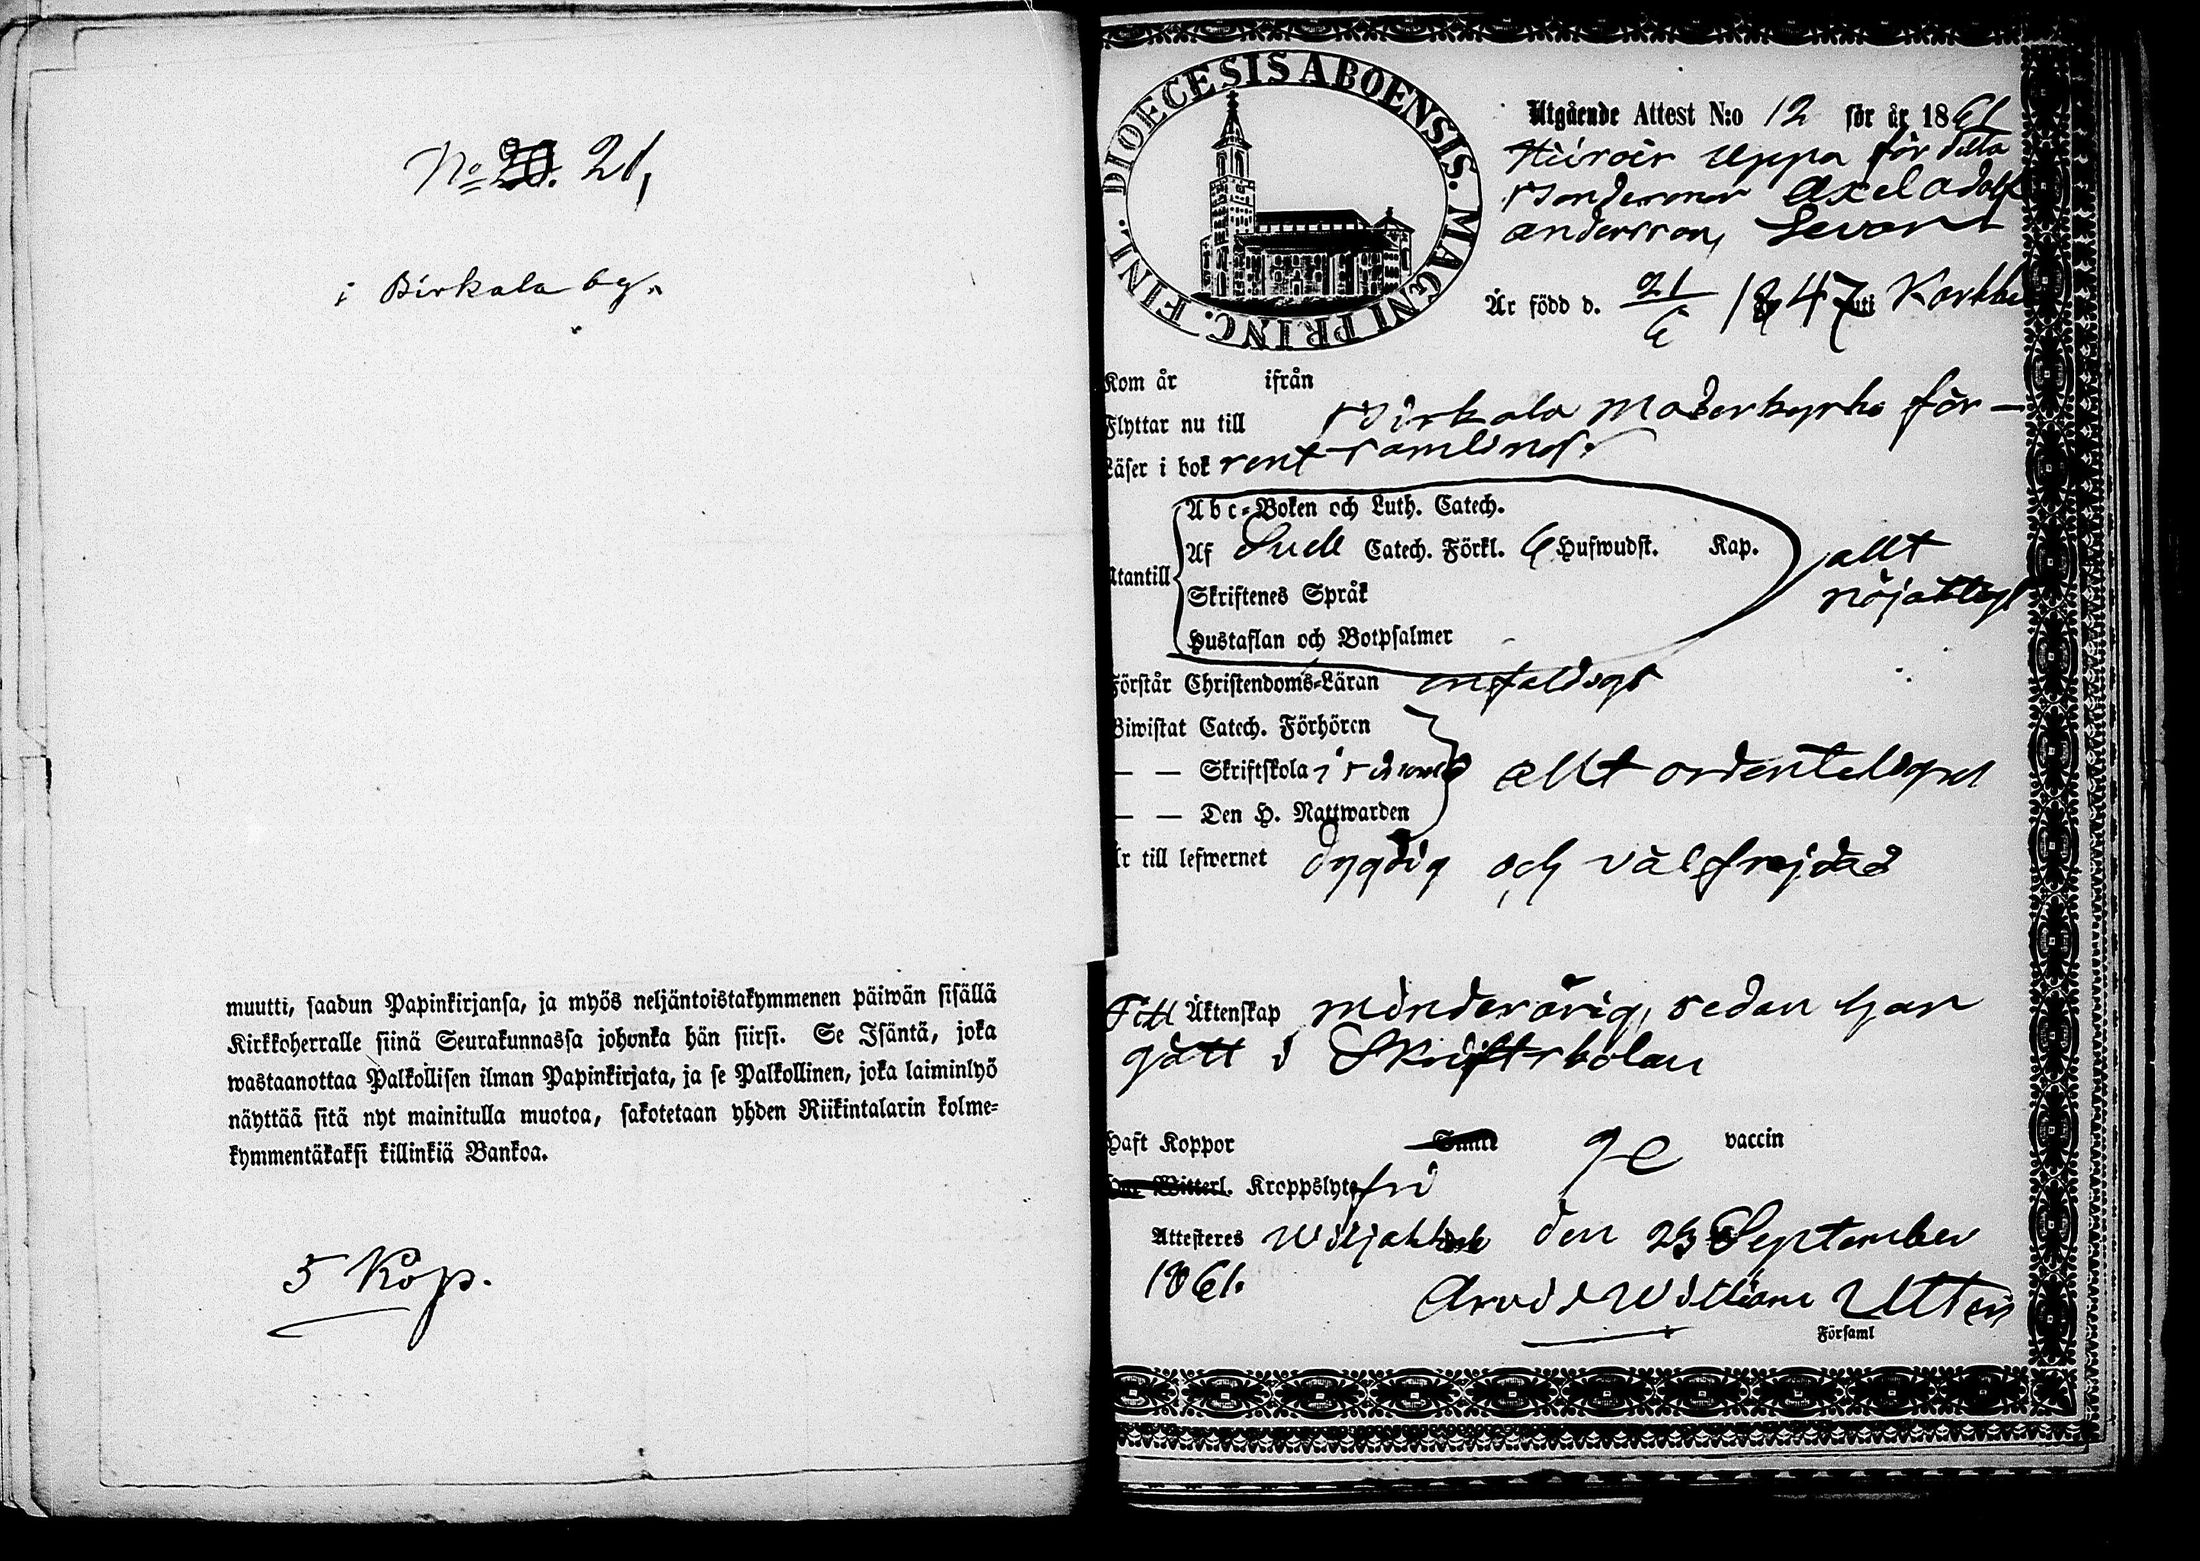 No 20. 21,
i Birkala by.
muutti, saadun Papinkirjansa, ja myös neljäntoistakymmenen päiwän sisällä
Kirkkoherralle siinä Seurakunnassa johonka hän siirsi. Se Isäntä, joka
wastaanottaa Palkollisen ilman Papinkirjata, ja se Palkollinen, joka laiminlyö
näyttää sitä nyt mainitulla muotoa, sakotetaan yhden Riikintalarin kolme-
kymmentäkaksi killinkiä Bankoa.
5 Kop.
DIOECESIS ABOENSIS. MAGNI PRINC. FINL.
Utgående Attest N:o 12 för år 1861
för
Axel Adolf
Andersson,
Är född d. 21/6 1847 uti
Kom år ifrån
Flyttar nu till Birkala Moderkyrko för-
Läser i bok rent samling.
Abc-Boken och Luth. Catech.
Af Catech. Förkl. 6 Hufwudst. Kap. allt
Utantill
Skriftenes Språk nöjaktigt
Hustaflan och Botpsalmer
Förstår Christendoms-Läran enfaldigt
Biwistat Catech. Förhören
— — Skriftskola allt ordenteligen
— — Den H. Nattwarden
Är till lefwernet dygdig och välfrejdad
Till Äktenskap minderårig, sedan han
gått i Skriftskolan
Haft Koppor vaccin
Kroppslyte fri
Attesteres den 23 September
1861.
Arvid William
Församl